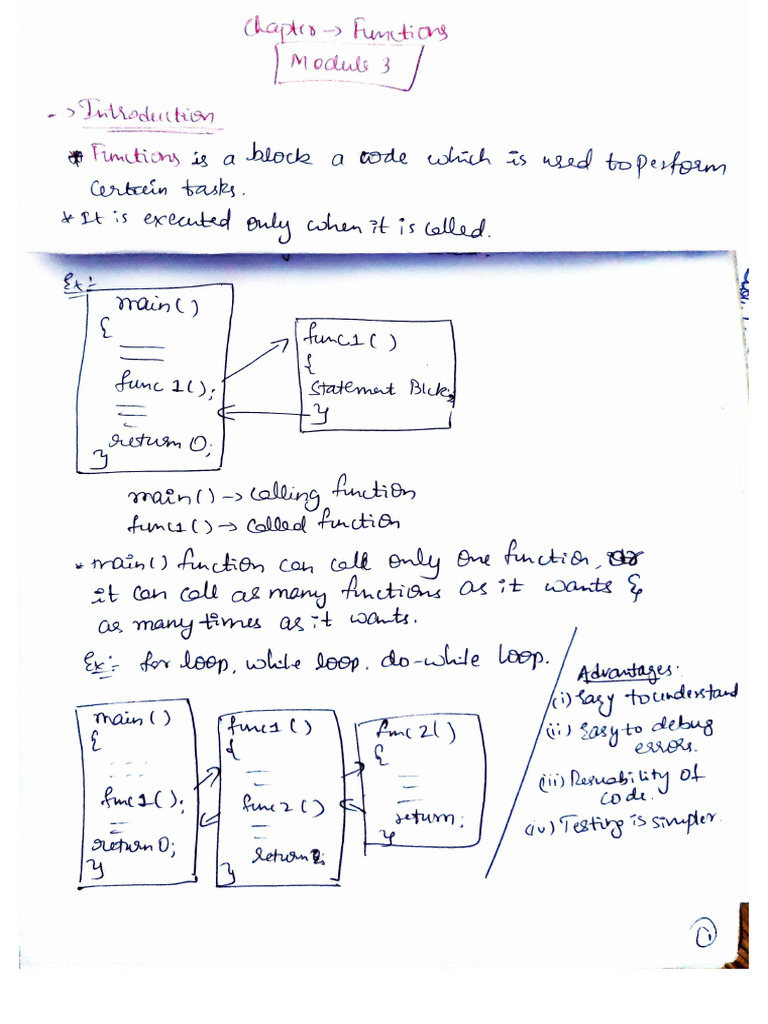 Chapter → Functions
Module 3
→ Introduction
* Functions is a block a code which is used to perform
certain tasks.
* It is executed only when it is called.
Ex:-
main()
{
func1();
return 0;
}
func1()
{
Statement Blck;
}
main() → calling function
func1() → called function
* main() function can call only one function, or
it can call as many functions as it wants &
as many times as it wants.
Ex:- for loop, while loop, do-while loop.
main()
{
func1();
return 0;
}
func1()
{
func2()
return;
}
func2()
{
return;
}
Advantages:
(i) Easy to understand
(ii) Easy to debug
errors.
(iii) Reusability of
code.
(iv) Testing is simpler.
1